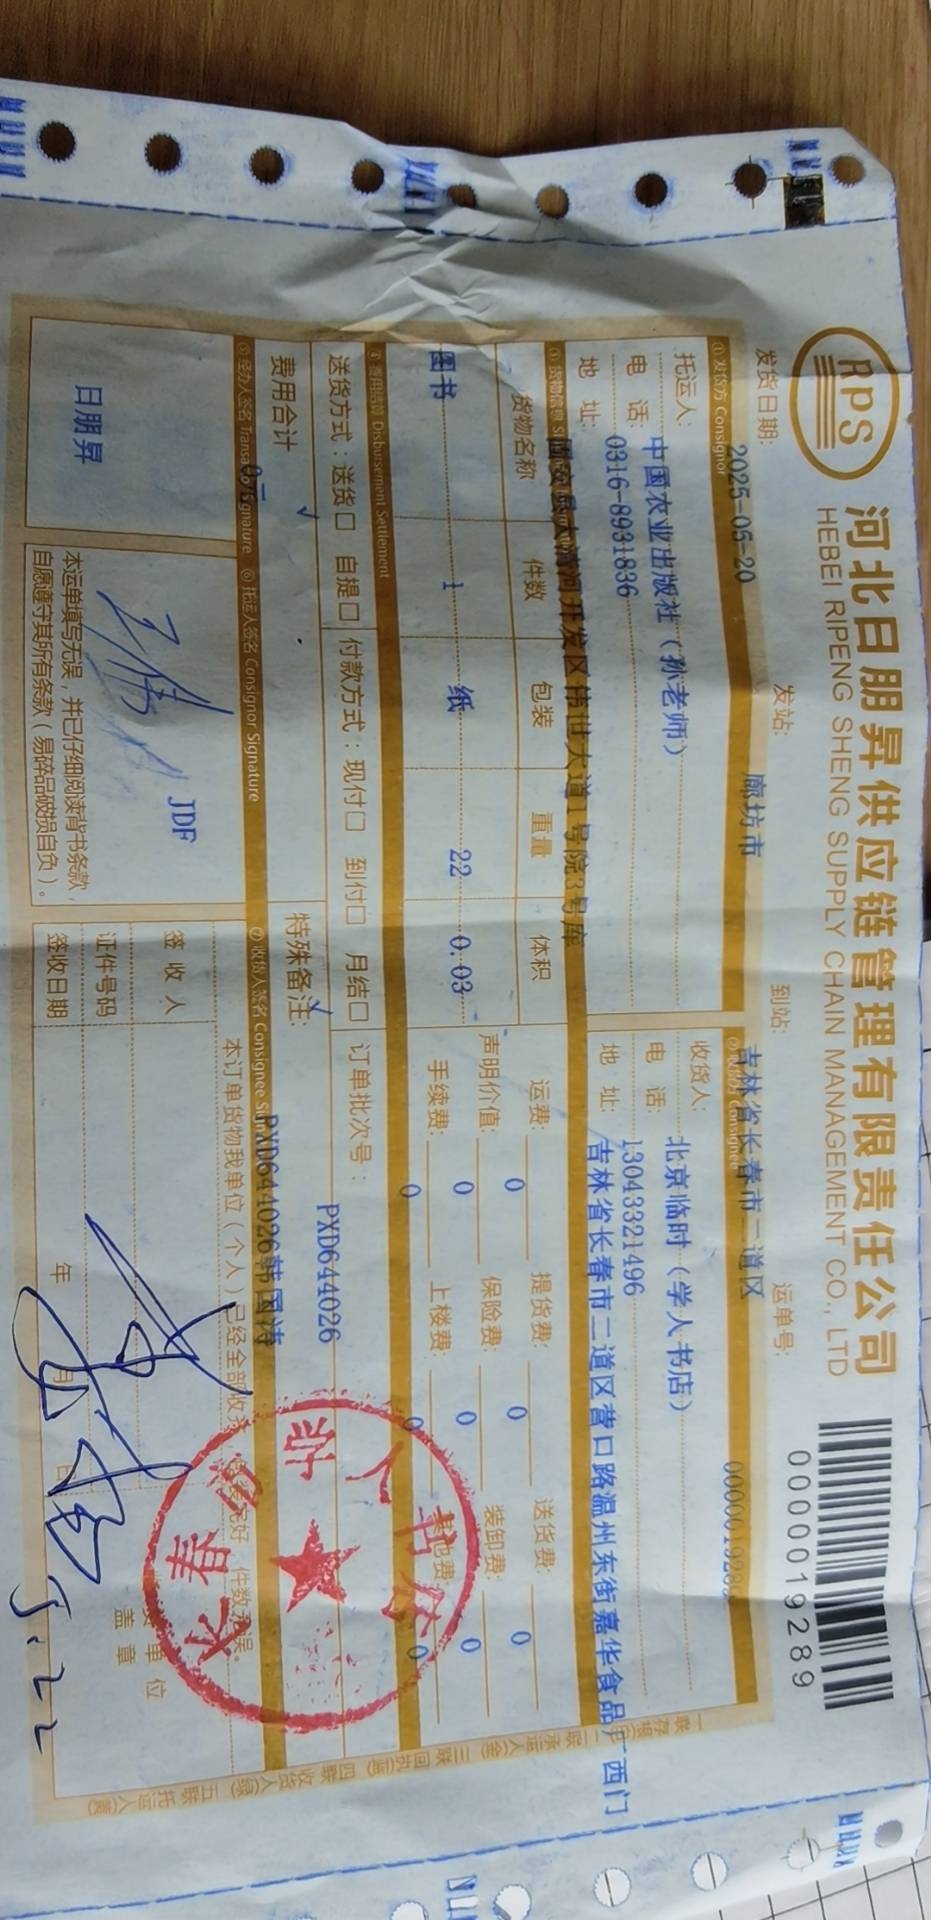 RPS 河北日朋昇供应链管理有限责任公司
HEBEI RIPENG SHENG SUPPLY CHAIN MANAGEMENT CO., LTD
0000019289
发货日期: 2025-05-20 发站: 廊坊市 到站: 吉林省长春市二道区 运单号:
① 发货方 Consignor
托运人: 中国农业出版社（孙老师）
电 话: 0316-8931836
地 址:
收货人: 北京临时（学人书店）
电 话: 13043321496
地 址: 吉林省长春市二道区营口路温州东街嘉华食品厂西门
货物名称 件数 包装 重量 体积
图书 1 纸 22 0.03
运费: 0 提货费: 0 送货费: 0
声明价值: 0 保险费: 0 装卸费: 0
手续费: 0 上楼费: 0 其他费: 0
④ 费用结算 Disbursement Settlement
送货方式：送货□ 自提□ 付款方式：现付□ 到付□ 月结□ 订单批次号： PXD644026
费用合计 0元 特殊备注: PXD644026韩国涛
⑤ 经办人签名 ⑥ 托运人签名 Consignor Signature ⑦ 收货人签名 Consignee
日朋昇
JDF
本运单填写无误，并已仔细阅读背书条款，
自愿遵守其所有条款（易碎品破损自负）。
本订单货物我单位（个人）已经全部收
签 收 人
证件号码
签收日期 年 月 日
5.22
单位
盖 章
长春
学人书店
一联存根 二联承运人 三联回执 四联收货人 五联托运人